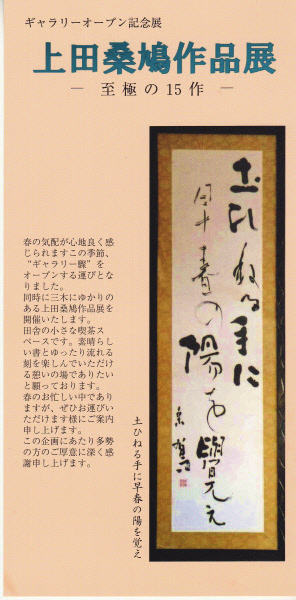 ギャラリーオープン記念展
上田桑鳩作品展
― 至極の15作 ―
春の気配が心地良く感
じられますこの季節、
“ギャラリー驟”を
オープンする運びとな
りました。
同時に三木にゆかりの
ある上田桑鳩作品展を
開催いたします。
田舎の小さな喫茶ス
ペースです。素晴らし
い書とゆったり流れる
刻を楽しんでいただけ
る憩いの場でありたい
と願っております。
春のお忙しい中であり
ますが、ぜひお運びい
ただけます様にご案内
申し上げます。
この企画にあたり多勢
の方のご厚意に深く感
謝申し上げます。
土ひねる手に早春の陽を覚え
土ひねる手に
早春の陽を覚え